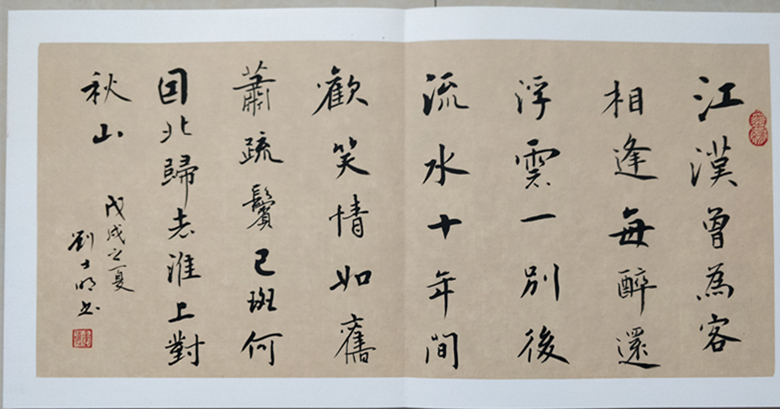 江漢曾為客
相逢每醉還
浮雲一別後
流水十年間
歡笑情如舊
蕭疏鬢已斑何
因北歸去淮上對
秋山
戊戌之夏
劉士明书